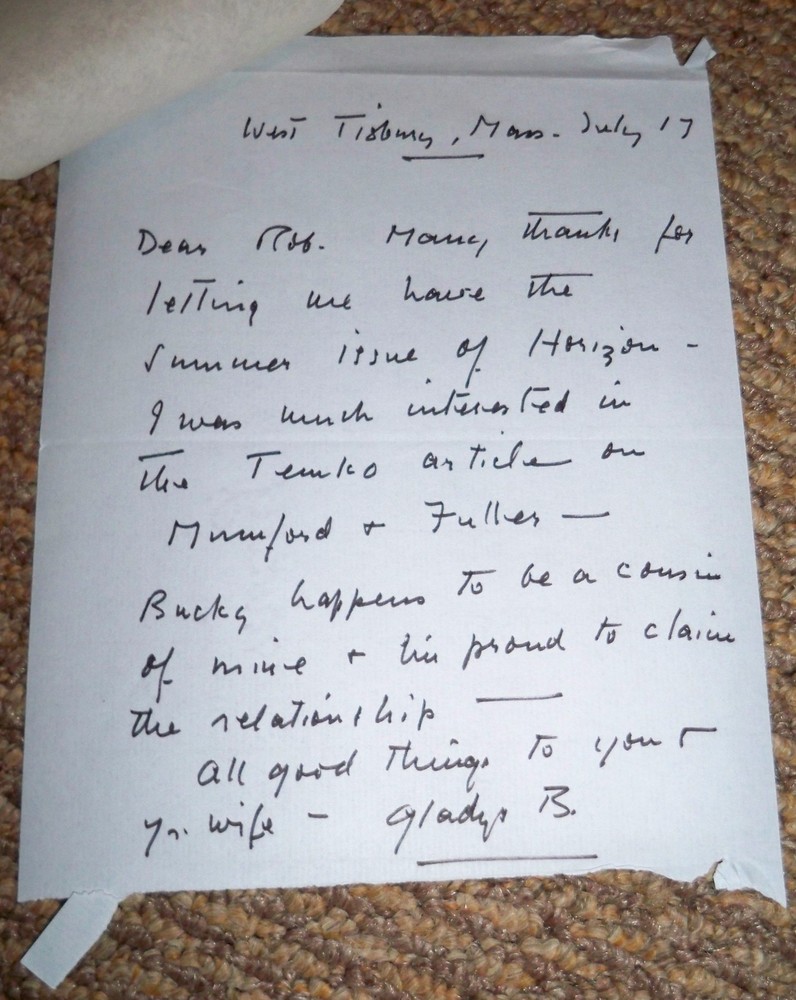 West Tisbury, Mass. July 17
Dear Rob. Many thanks for
letting me have the
summer issue of Horizon -
I was much interested in
the Temko article on
Mumford + Fuller —
Bucky happens to be a cousin
of mine + I'm proud to claim
the relationship —
All good things to you +
yr. wife - Gladys B.